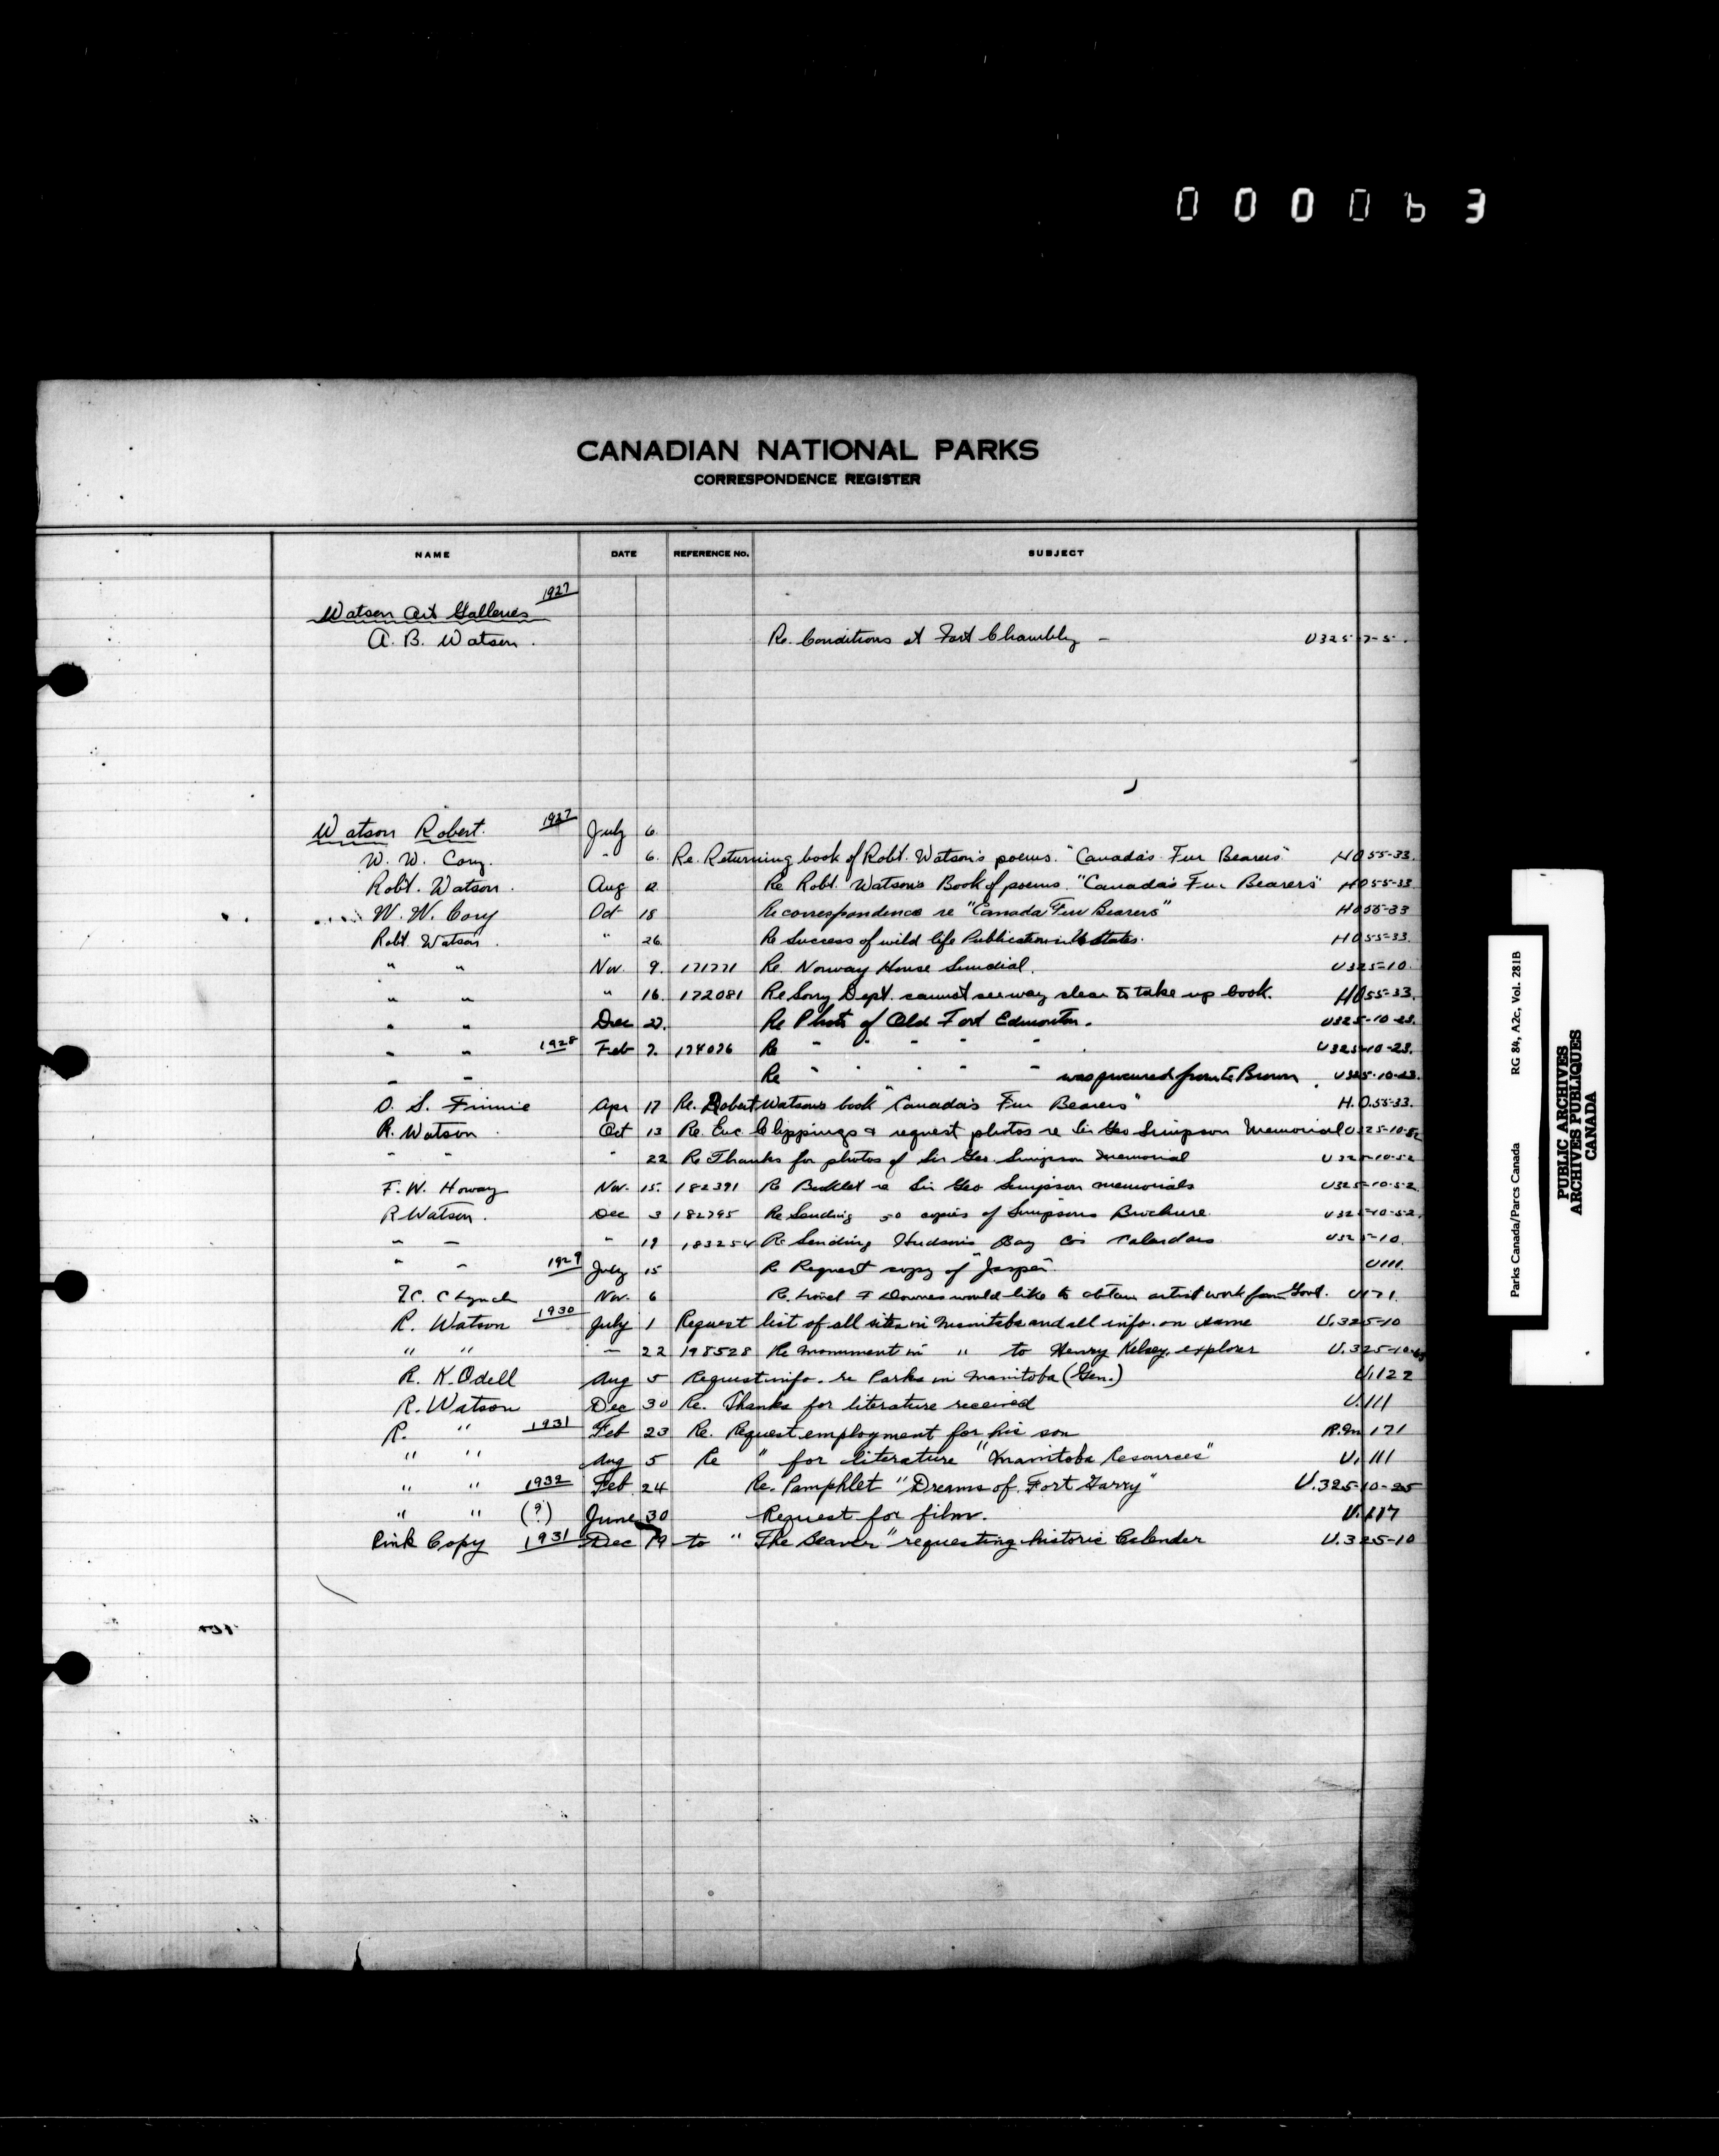 000063
CANADIAN NATIONAL PARKS
CORRESPONDENCE REGISTER
NAME DATE REFERENCE NO. SUBJECT
1927
Watson Art Galleries
A. B. Watson. Re. Conditions at Fort Chambly - U325-7-5.
Watson Robert. 1927 July 6
W. W. Cory. " 6. Re. Returning book of Robt. Watson's poems. "Canada's Fur Bearers" HO55-33.
Robt. Watson. Aug 12 Re Robt. Watson's Book of poems. "Canada's Fur Bearers" HO55-33
W. W. Cory Oct 18 Re correspondence re "Canada Fur Bearers" HO55-33
Robt. Watson. " 26. Re Success of wild life Publication in States. HO55-33.
" " Nov. 9. 171771 Re. Norway House Sundial. U325-10.
" " " 16. 172081 Re Sorry Dept. cannot see way clear to take up book. HO55-33.
" " Dec 27. Re Photo of Old Fort Edmonton. U325-10-23.
" " 1928 Feb 7. 174076 Re " " " " " U325-10-23.
" " Re " " " " " was procured from Brown. U325-10-23.
O. S. Finnie Apr 17 Re. Robert Watson's book "Canada's Fur Bearers" H.O.55-33.
R. Watson. Oct 13 Re. Enc. Clippings & request photos re Sir Geo Simpson Memorial U325-10-52
" " " 22 Re Thanks for photos of Sir Geo. Simpson Memorial U325-10-52
F. W. Howay Nov. 15. 182391 Re Booklet re Sir Geo Simpson memorials U325-10-52.
R Watson. Dec 3 182795 Re Sending 50 copies of Simpsons Brochure. U325-10-52.
" " " 19 183254 Re Sending Hudson's Bay Co's Calendars U325-10.
" " 1929 July 15 Re Request copy of "Jasper". U111.
C Lynch Nov. 6 Re. & Downes would like to obtain artist work from Govt. U171.
R. Watson 1930 July 1 Request list of all sites in Manitoba and all info. on same U.325-10
" " " 22 198528 Re monument in " to Henry Kelsey, explorer U.325-10-
R. K. Odell Aug 5 Request info. re Parks in Manitoba (Gen.) U.122
R. Watson Dec 30 Re. Thanks for literature received U.111
R. " 1931 Feb 23 Re. Request employment for his son 171
" " Aug 5 Re " for literature "Manitoba Resources" U.111
" " 1932 Feb 24 Re. Pamphlet "Dreams of Fort Garry" U.325-10-25
" " (?) June 30 Request for film. U.117
Pink Copy 1931 Dec 19 to "The Beaver" requesting historic Calender U.325-10
Parks Canada/Parcs Canada RG 84, A2c, Vol. 281B
PUBLIC ARCHIVES
ARCHIVES PUBLIQUES
CANADA